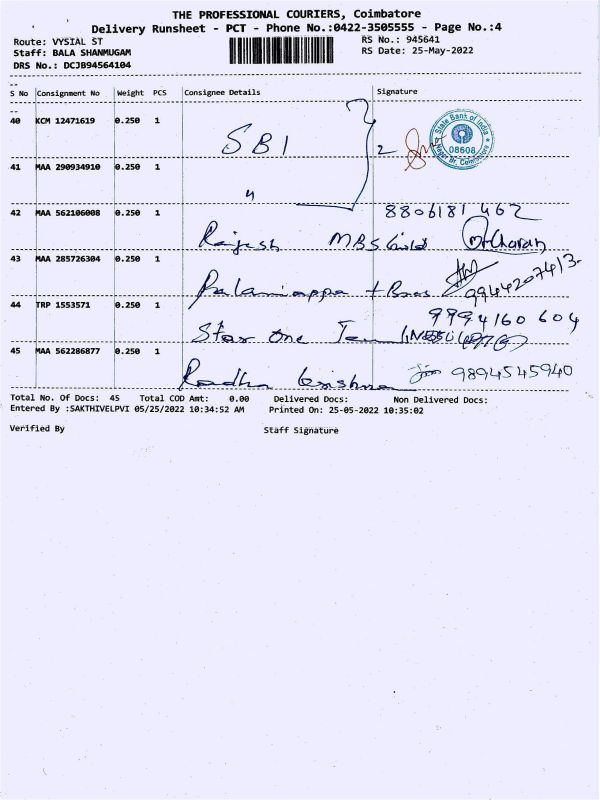 THE PROFESSIONAL COURIERS, Coimbatore
Delivery Runsheet - PCT - Phone No.:0422-3505555 - Page No.:4
Route: VYSIAL ST
RS No.: 945641
Staff: BALA SHANMUGAM
RS Date: 25-May-2022
DRS No.: DCJB94564104
S No Consignment No Weight PCS Consignee Details Signature
40 KCM 12471619 0.250 1 SBI 2
State Bank of India
08608
Coimbatore
41 MAA 290934910 0.250 1 "
8806181462
42 MAA 562106008 0.250 1 Rajesh MBS Gold Charan
43 MAA 285726304 0.250 1 Palaniappa + Bros 9944207413
9994160604
44 TRP 1553571 0.250 1 Star One
45 MAA 562286877 0.250 1 Radha Krishna 9894545940
Total No. Of Docs: 45 Total COD Amt: 0.00 Delivered Docs: Non Delivered Docs:
Entered By :SAKTHIVELPVI 05/25/2022 10:34:52 AM Printed On: 25-05-2022 10:35:02
Verified By Staff Signature